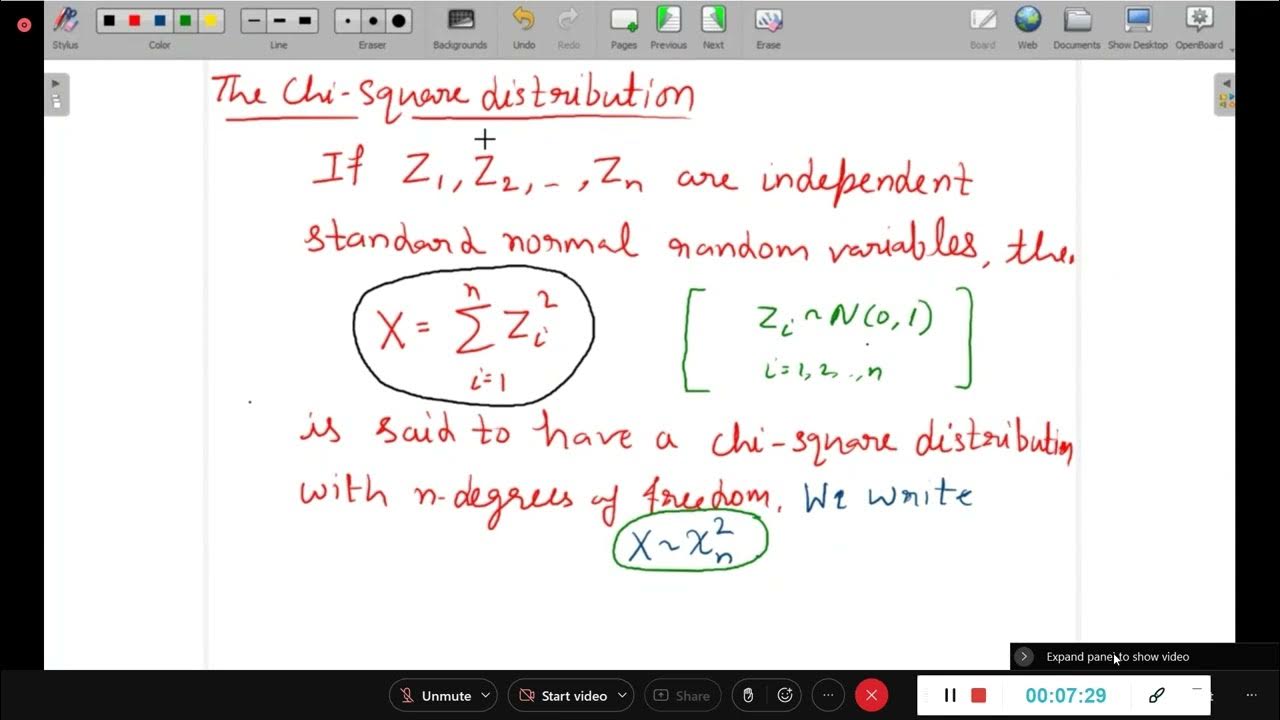 Stylus
Color
Line
Eraser
Backgrounds
Undo
Redo
Pages
Previous
Next
Erase
Board
Web
Documents
Show Desktop
OpenBoard
The Chi-Square distribution
If Z₁, Z₂, -., Zn are independent
standard normal random variables, the.
X = ∑ᵢ₌₁ⁿ Zᵢ²
[ Zᵢ ~ N(0,1)
i=1,2,..,n ]
is said to have a chi-square distribution
with n-degrees of freedom. We write
X ~ χ²ₙ
Expand panel to show video
Unmute
Start video
Share
00:07:29